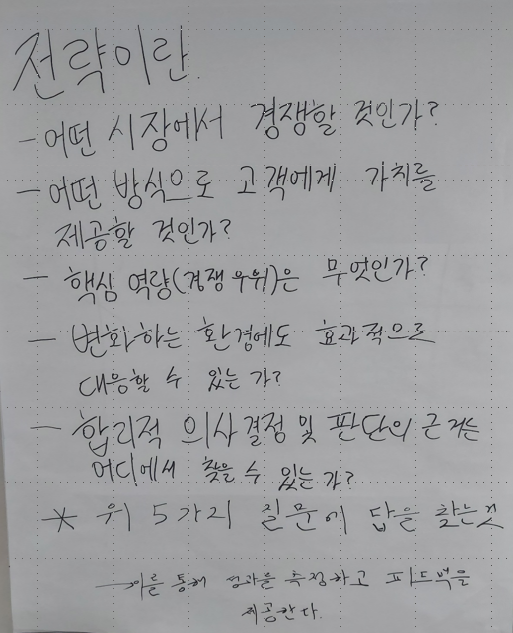 전략이란
- 어떤 시장에서 경쟁할 것인가?
- 어떤 방식으로 고객에게 가치를
제공할 것인가?
- 핵심 역량(경쟁 우위)은 무엇인가?
- 변화하는 환경에도 효과적으로
대응할 수 있는 가?
- 합리적 의사결정 및 판단의 근거는
어디에서 찾을 수 있는 가?
* 위 5가지 질문에 답을 찾는것
→ 이를 통해 성과를 측정하고 피드백을
제공한다.